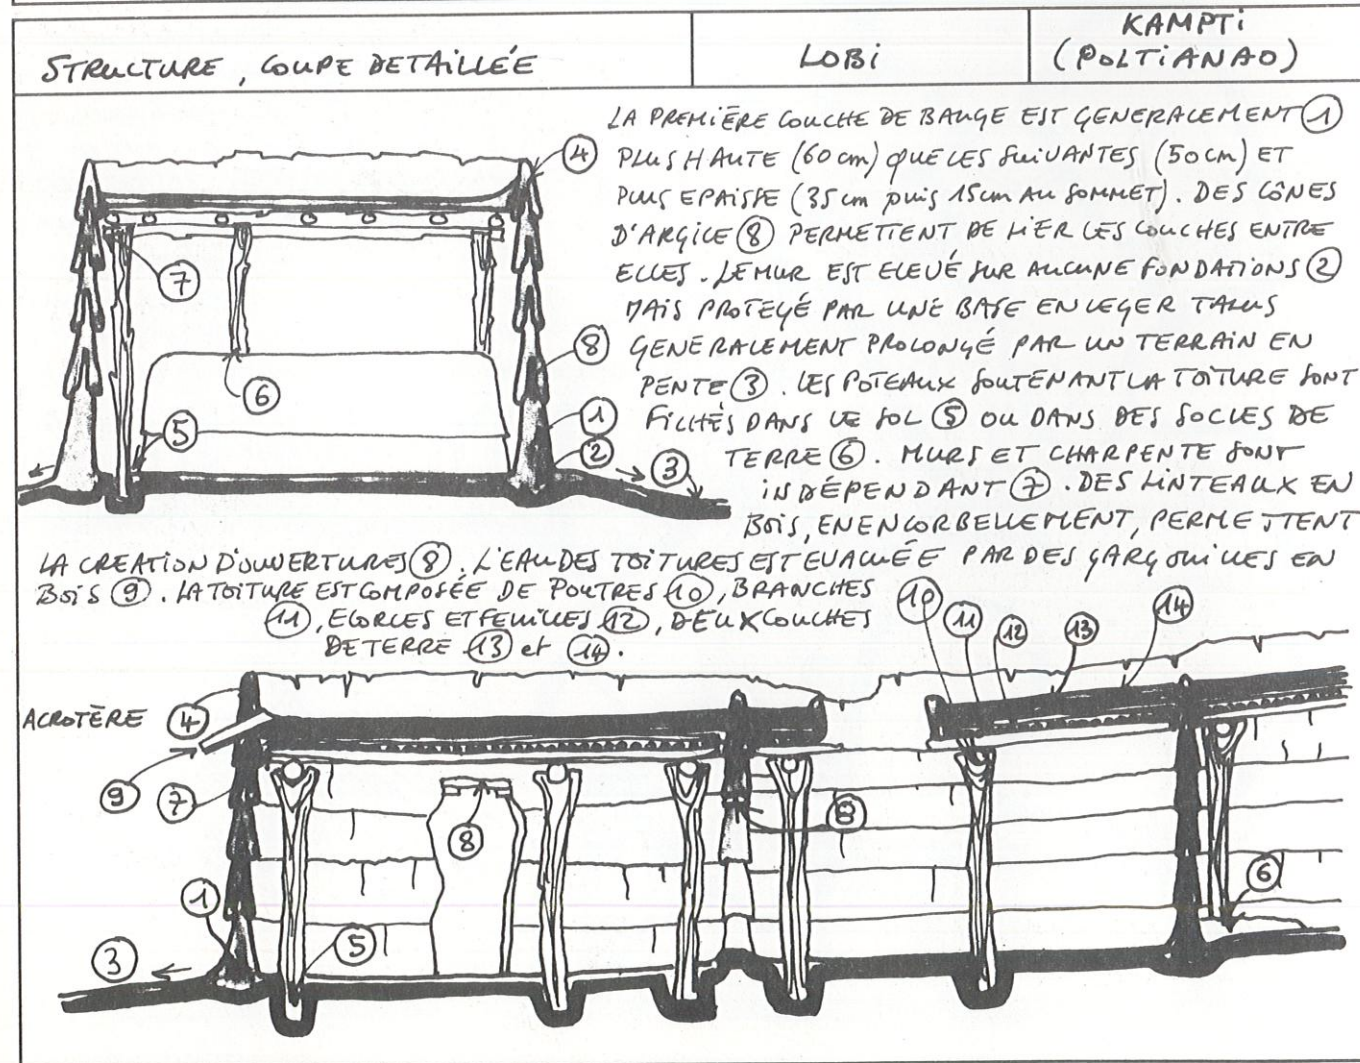 STRUCTURE, COUPE DETAILLÉE
LOBi
KAMPTi
(POLTiANAO)
LA PREMIÈRE COUCHE DE BAUGE EST GENERALEMENT ①
PLUS HAUTE (60 cm) QUE LES SUIVANTES (50 cm) ET
PLUS EPAISSE (35 cm puis 15 cm AU SOMMET). DES CÔNES
D'ARGILE ⑧ PERMETTENT DE LIER LES COUCHES ENTRE
ELLES. LE MUR EST ELEVÉ SUR AUCUNE FONDATIONS ②
MAIS PROTEGÉ PAR UNE BASE EN LEGER TALUS
GENERALEMENT PROLONGÉ PAR UN TERRAIN EN
PENTE ③. LES POTEAUX SOUTENANT LA TOITURE SONT
FICHÉS DANS LE SOL ⑤ OU DANS DES SOCLES DE
TERRE ⑥. MURS ET CHARPENTE SONT
INDÉPENDANT ⑦. DES LINTEAUX EN
BOIS, EN ENCORBELLEMENT, PERMETTENT
LA CREATION D'OUVERTURES ⑧. L'EAU DES TOITURES EST EVACUÉE PAR DES GARGOUILLES EN
BOIS ⑨. LA TOITURE EST COMPOSÉE DE POUTRES ⑩, BRANCHES
⑪, ECORCES ET FEUILLES ⑫, DEUX COUCHES
DE TERRE ⑬ et ⑭.
④
⑦
⑧
⑥
①
⑤
②
③
⑩ ⑪ ⑫ ⑬ ⑭
ACROTÈRE ④
⑨ ⑦
⑧
⑧
⑥
①
⑤
③